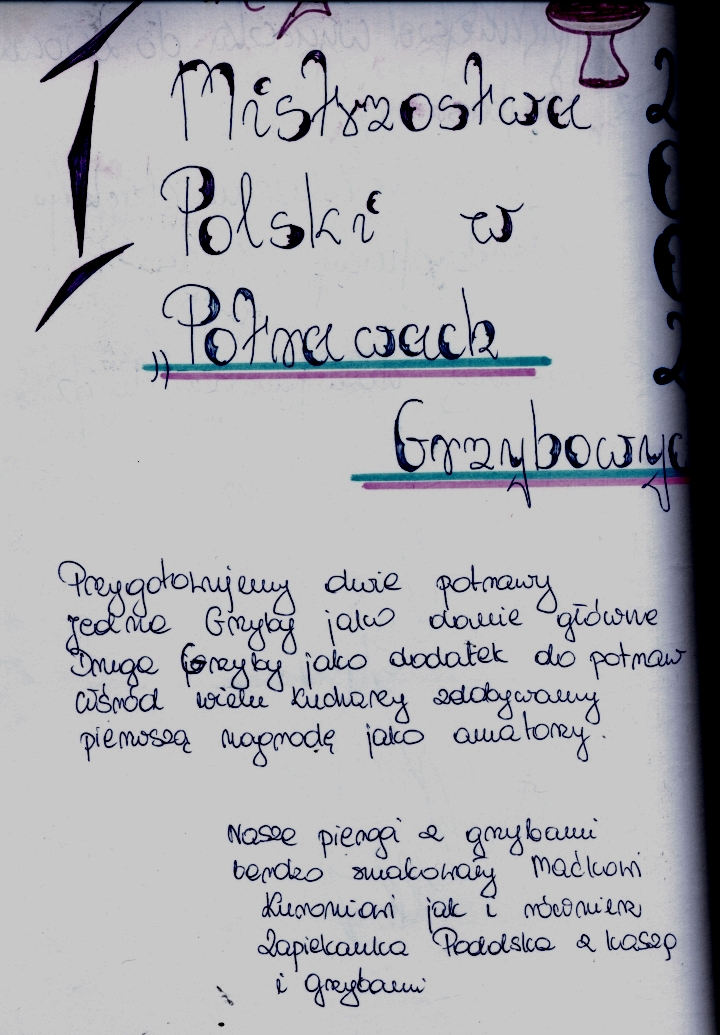 I Mistrzostwa
Polski w
Potrawach
Grzybowyc
2002
Przygotowujemy dwie potrawy
jedna Grzyby jako danie główne
Druga Grzyby jako dodatek do potraw
wśród wielu kucharzy zdobywamy
pierwszą nagrodę jako amatorzy.
Nasze pierogi z grzybami
bardzo smakowały Maćkowi
Kuroniowi jak i również
Zapiekanka Podolska z kaszą
i grzybami